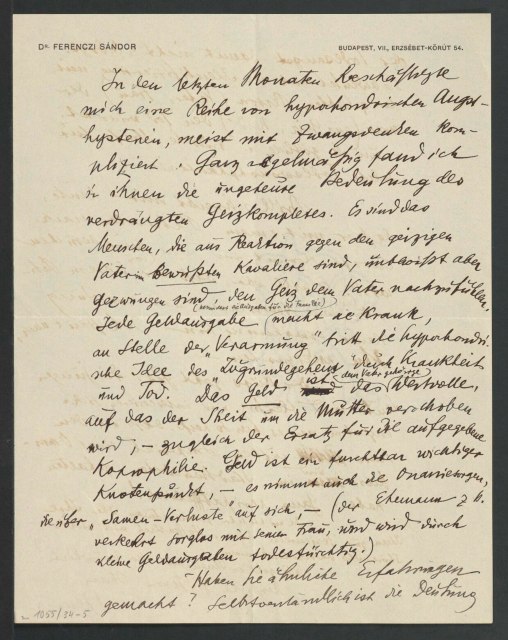 Dr. FERENCZI SÁNDOR
BUDAPEST, VII., ERZSÉBET-KÖRÚT 54.
In den letzten Monaten beschäftigte
mich eine Reihe von hypochondrischen Angst-
hysterien, meist mit Zwangsdenken kom-
pliziert. Ganz regelmäßig fand ich
in ihnen die ungeheure Bedeutung des
verdrängten Geizkomplexes. Es sind das
Menschen, die aus Reaktion gegen den geizigen
Vater im bewußten Kavaliere sind, unbewußt aber
gezwungen sind, den Geiz dem Vater nachzufühlen.
(besonders die Ausgaben für die Familie)
Jede Geldausgabe macht sie krank,
an Stelle der „Verarmung" tritt die hypochondri-
sche Idee des „Zugrundegehens" durch Krankheit
und Tod. Das Geld ist das (dem Vater gehörige) Wertvolle,
auf das der Streit um die Mutter verschoben
wird, – zugleich der Ersatz für die aufgegebene
Koprophilie. Geld ist ein furchtbar wichtiger
Knotenpunkt, – es nimmt auch die
die über „Samen-Verluste" auf sich, – (der Ehemann z. B.
verkehrt sorglos mit seiner Frau, und wird durch
kleine Geldausgaben todesfürchtig.)
Haben Sie ähnliche Erfahrungen
gemacht? Selbstverständlich ist die Deutung
1055/34-5